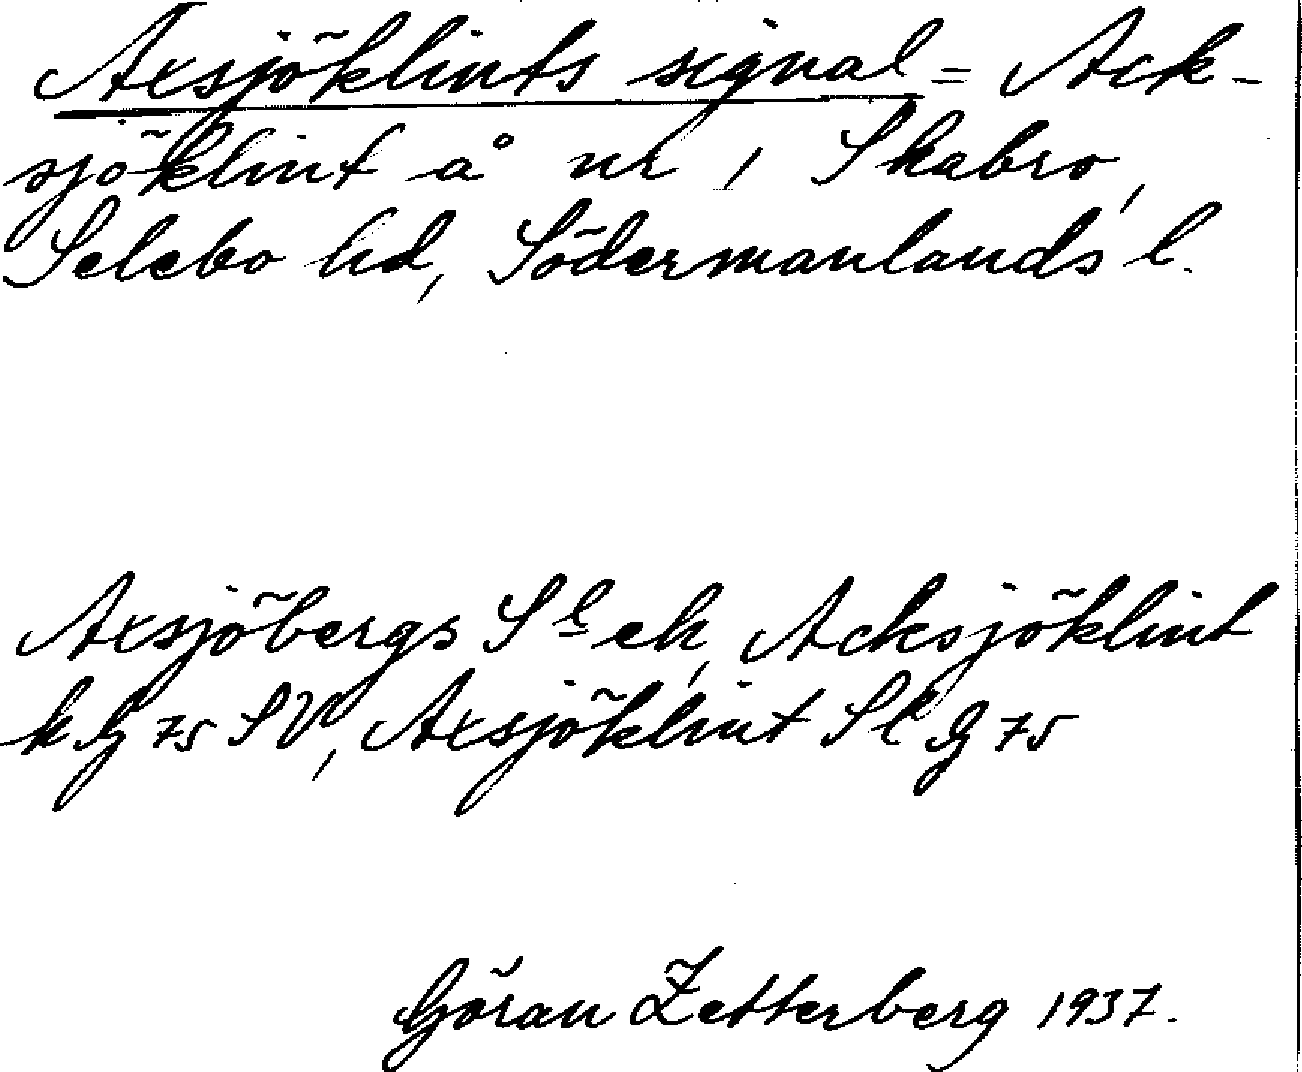 Axsjöklints signal = Ack-
sjöklint å nr 1 Skabro,
Selebo hd, Södermanlands l.
Axsjöbergs Sl ek, Acksjöklint
k G 75 SV, Axsjöklint Sl G 75
Göran Zetterberg 1937.